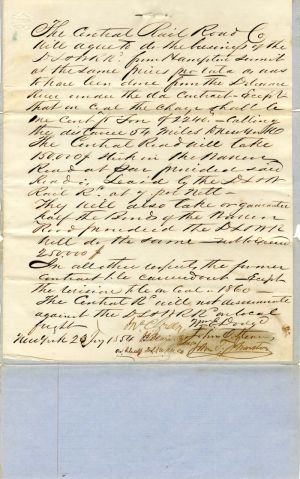 The Central Rail Road Co
will agree to do the business of the
D L & W RR. from Hampton Summit
at the same prices pro rata as was
have been done from the Delaware
River under the old Contract except
that on Coal the Charge shall be
one Cent p Ton of 2240
the distance 54 Miles to New York
The Central Road will take
150,000 $ Stock in the Warren
Road at par provided said
Road is Leased by the D L & W
Rail Rd at 7 per cent
They will also take or guarantee
half the Bonds of the Warren
Road provided the D L & W RR
will do the same
250,000 $
In all other respects the former
Contract to be carried out except
the revision to be on Coal in 1860
The Central Rd. will not discriminate
against the D L & W RR on local
freight
New York 23 1854
Wm E Dodge
John